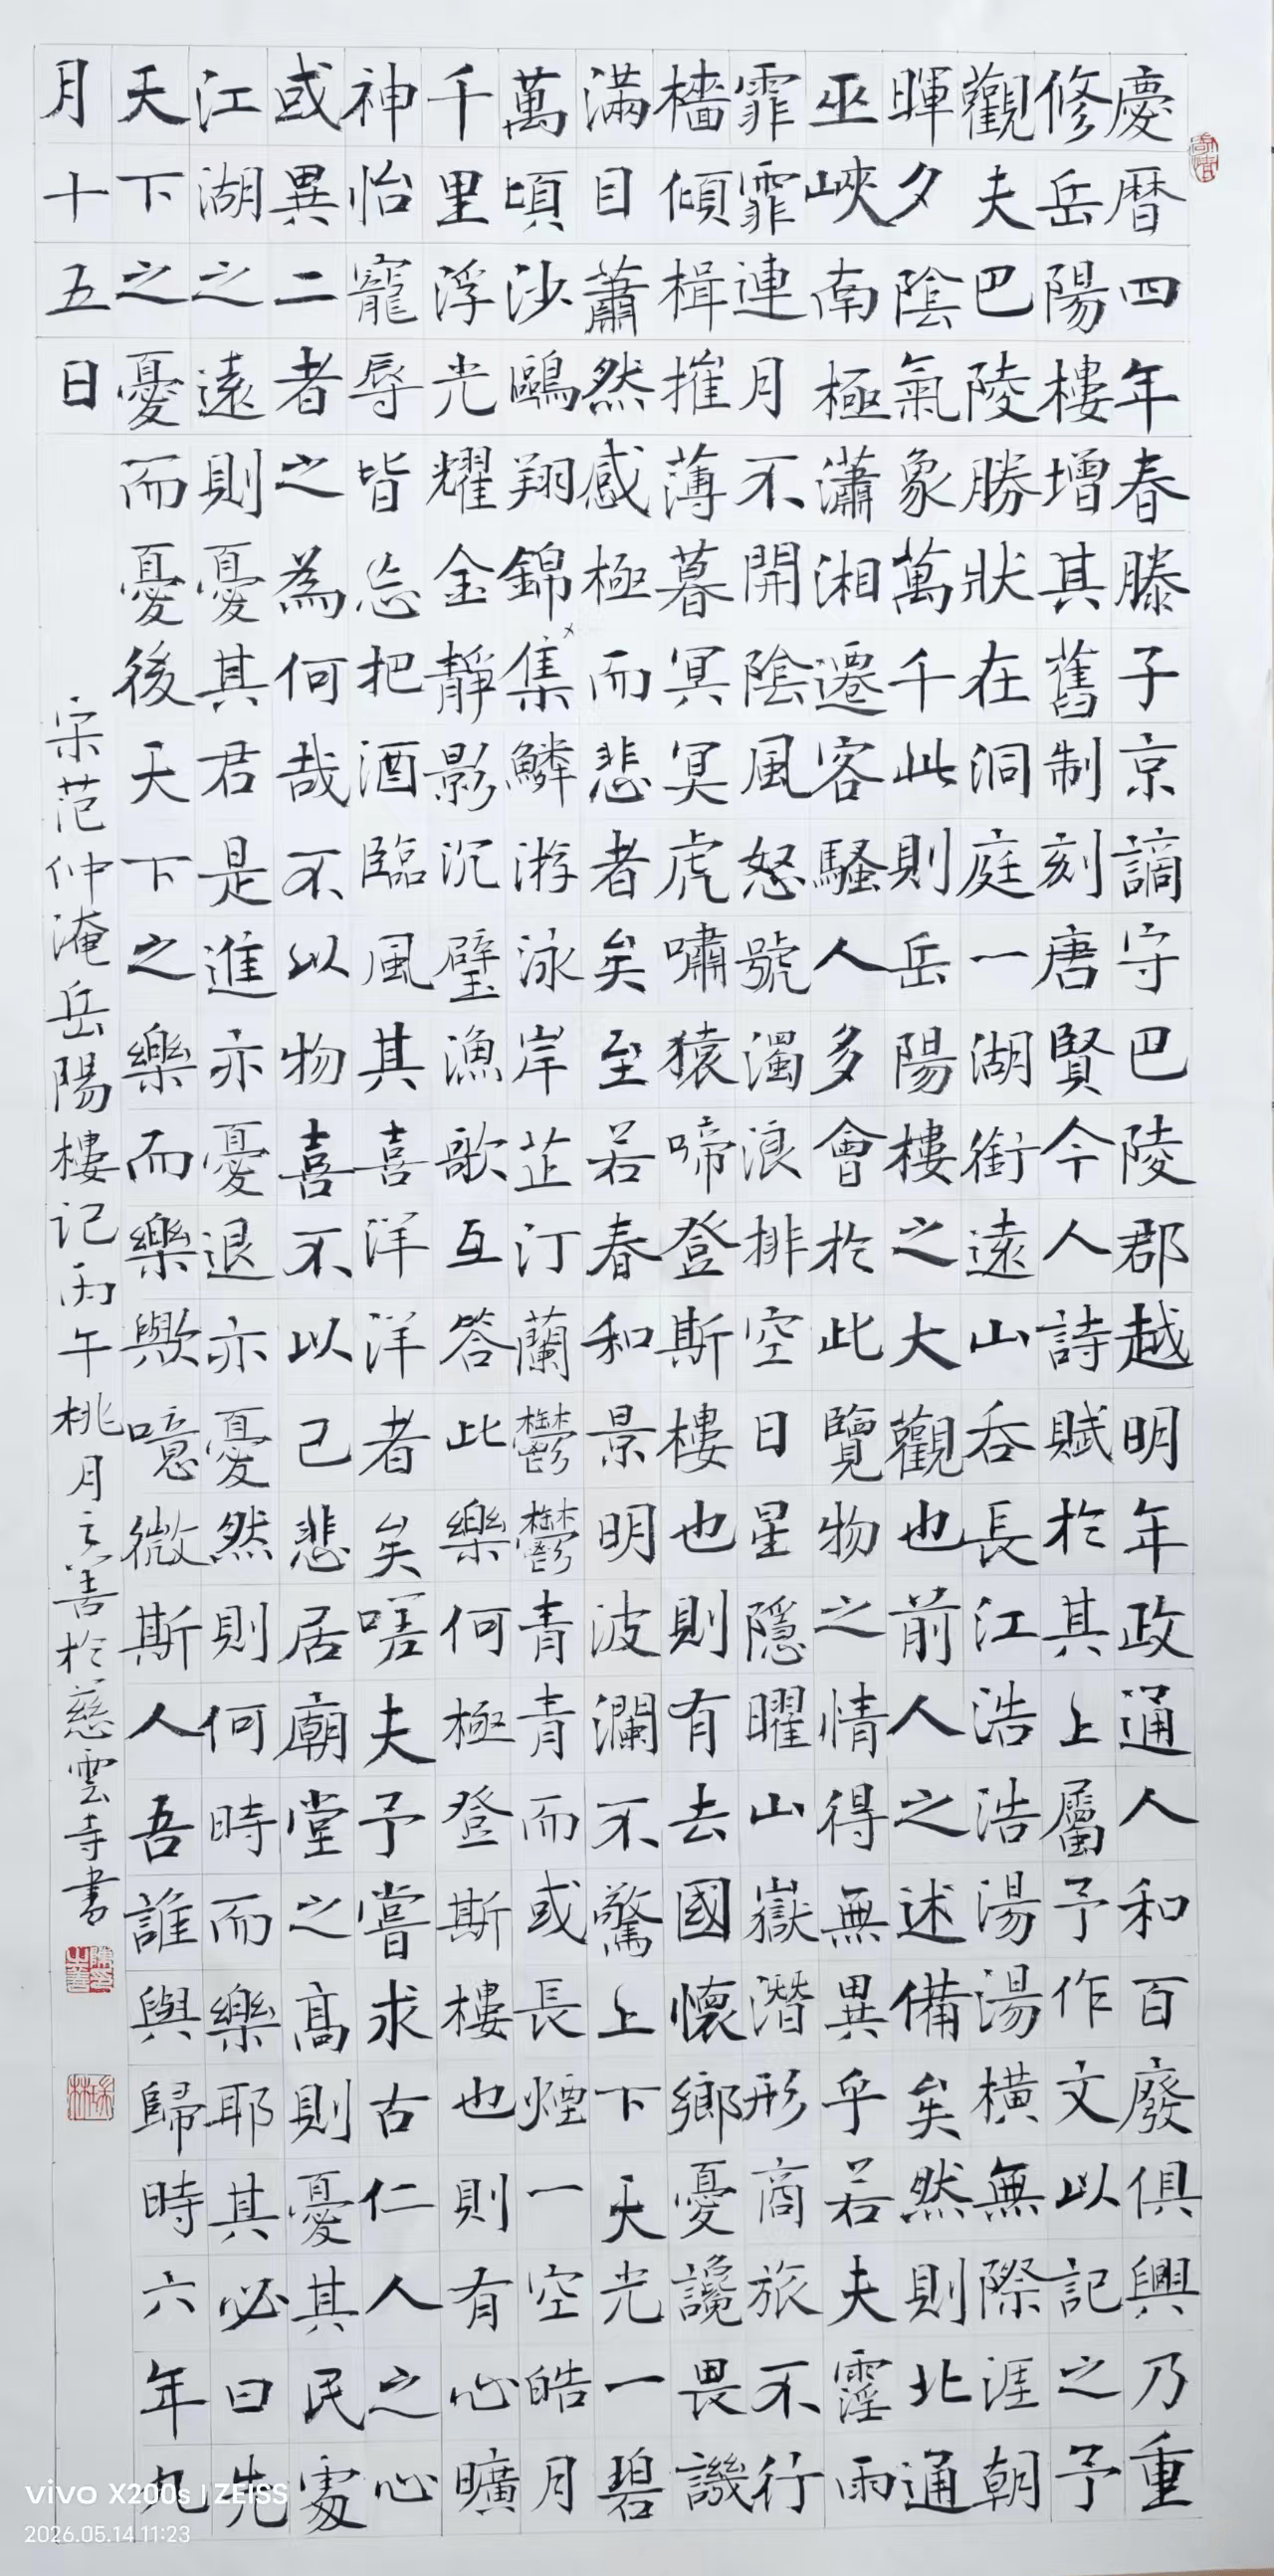 慶暦四年春滕子京謫守巴陵郡越明年政通人和百廢俱興乃重
修岳陽樓增其舊制刻唐賢今人詩賦於其上屬予作文以記之予
觀夫巴陵勝狀在洞庭一湖銜遠山吞長江浩浩湯湯橫無際涯朝
暉夕陰氣象萬千此則岳陽樓之大觀也前人之述備矣然則北通
巫峽南極瀟湘遷客騷人多會於此覽物之情得無異乎若夫霪雨
霏霏連月不開陰風怒號濁浪排空日星隱曜山嶽潛形商旅不行
檣傾楫摧薄暮冥冥虎嘯猿啼登斯樓也則有去國懷鄉憂讒畏譏
滿目蕭然感極而悲者矣至若春和景明波瀾不驚上下天光一碧
萬頃沙鷗翔錦集鱗游泳岸芷汀蘭鬱鬱青青而或長煙一空皓月
千里浮光耀金靜影沉璧漁歌互答此樂何極登斯樓也則有心曠
神怡寵辱皆忘把酒臨風其喜洋洋者矣嗟夫予嘗求古仁人之心
或異二者之為何哉不以物喜不以己悲居廟堂之高則憂其民處
江湖之遠則憂其君是進亦憂退亦憂然則何時而樂耶其必曰先
天下之憂而憂後天下之樂而樂歟噫微斯人吾誰與歸時六年九
月十五日
宋范仲淹岳陽樓记丙午桃月之善於慈雲寺書
vivo X200s | ZEISS
2026.05.14 11:23